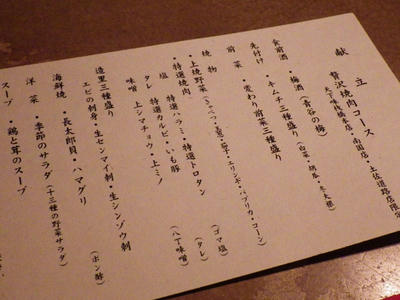 献立
贅沢焼肉コース
天下味札橋本店・南国店・土佐道路店限定
食前酒・梅酒（青谷の梅）
先付け・キムチ三種盛り（白菜・胡瓜・冬大根）
前菜・変わり前菜三種盛り
焼物
・上焼野菜（きゃべつ・玉葱・茄子・エリンギ・パプリカ・コーン）
・特選焼肉
塩 特選ハラミ・特選トロタン（ゴマ塩）
タレ 特選カルビ・いも豚（タレ）
味噌 上シマチョウ・上ミノ（八丁味噌）
造里三種盛り
エビの刺身・生センマイ刺・生シンゾウ刺（ポン酢）
海鮮焼・長太郎貝・ハマグリ
洋菜・季節のサラダ（十三種の野菜サラダ）
スープ・鶏と茸のスープ